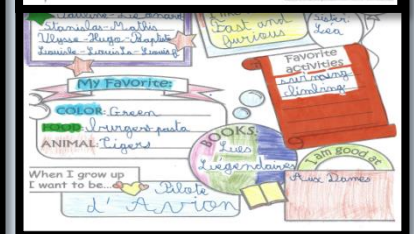 Stanislas - Mathis
Ulysse - Hugo - Baptiste
Fast and
furious
Sister:
Lea
Favorite
activities
swimming
climbing
My Favorite:
COLOR: Green
FOOD: burgers pasta
ANIMAL: Tigers
BOOKS:
Les
Légendaires
I am good at
Aux Dames
When I grow up
I want to be...
Pilote
d'Avion